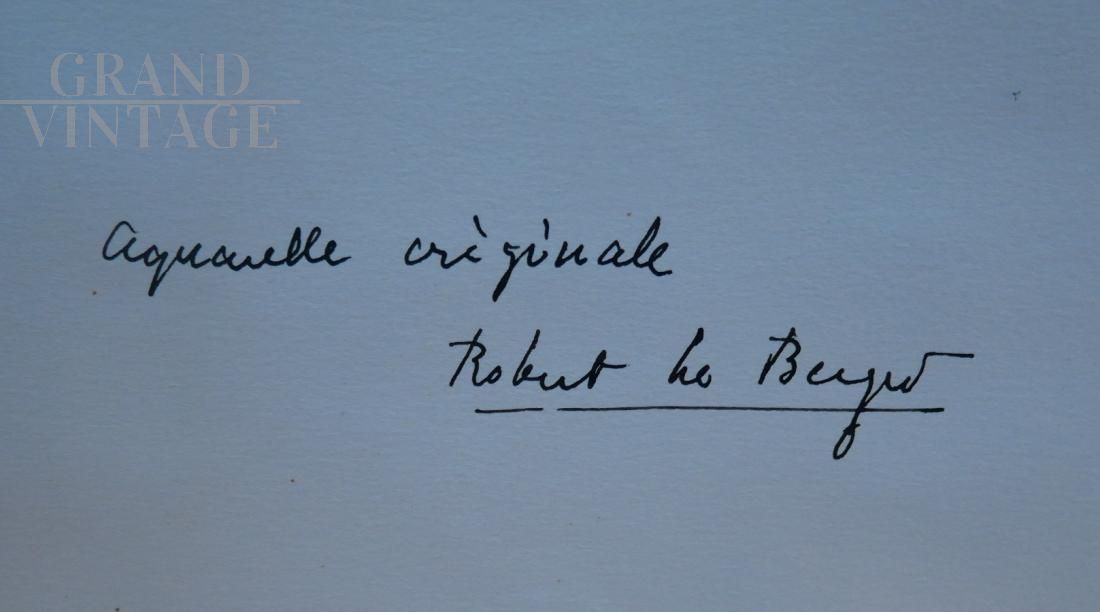 GRAND
VINTAGE
Aquarelle originale
Robert Le Berger